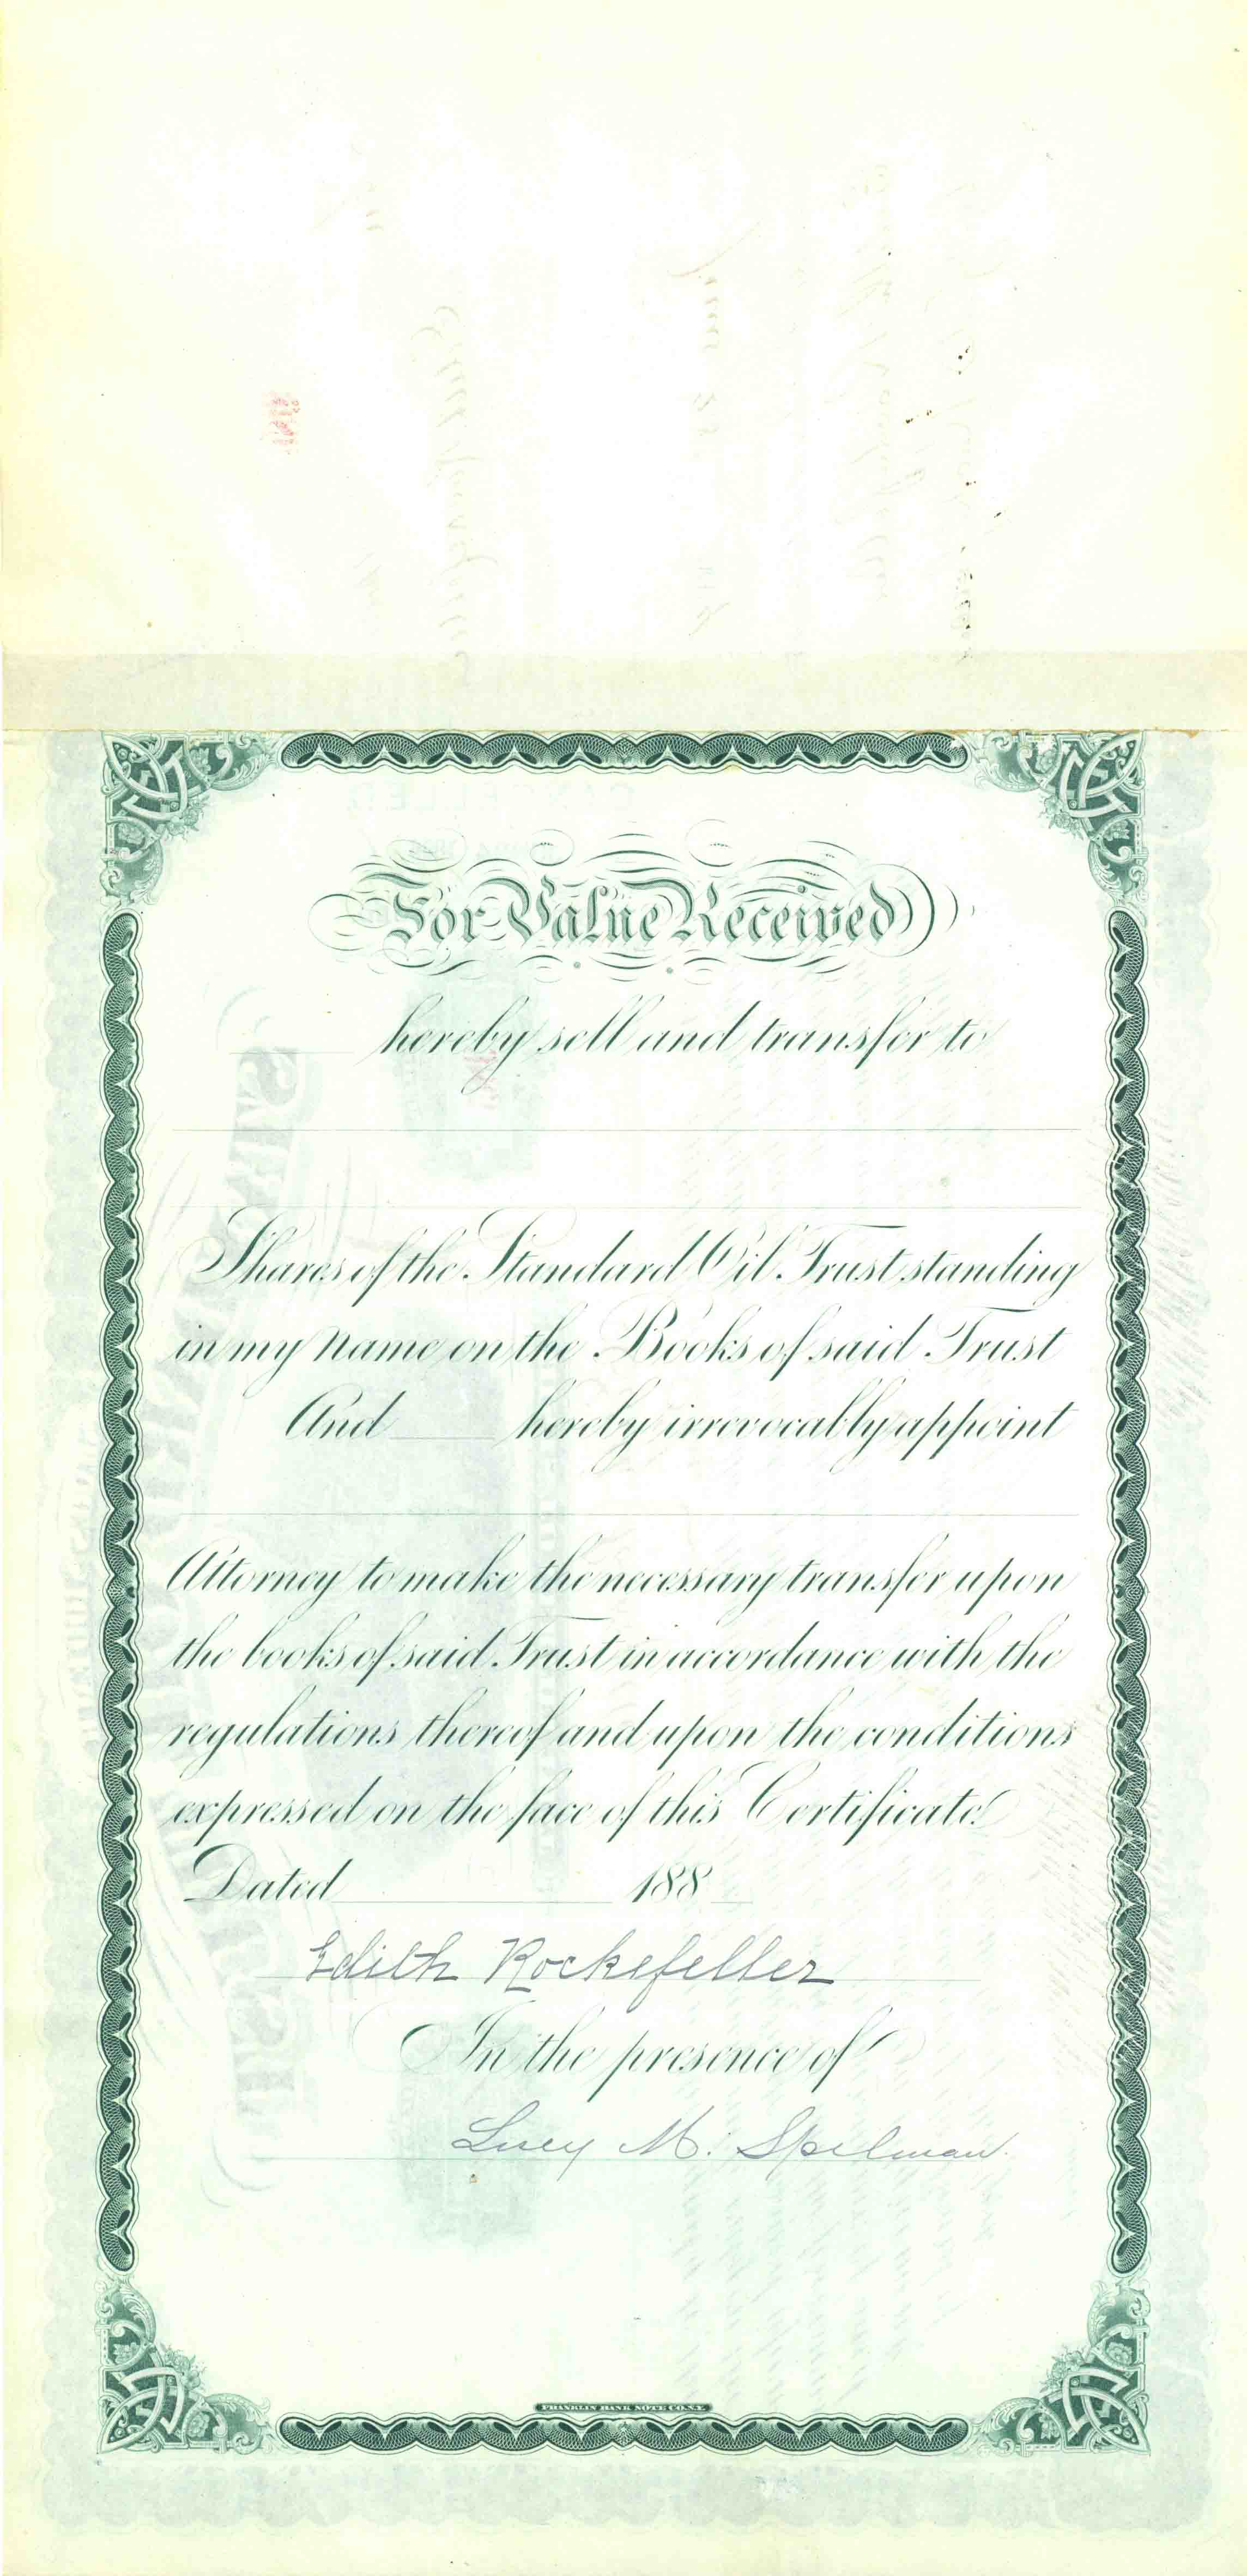 For Value Received
hereby sell and transfer to
Shares of the Standard Oil Trust standing
in my name on the Books of said Trust
And hereby irrevocably appoint
Attorney to make the necessary transfer upon
the books of said Trust in accordance with the
regulations thereof and upon the conditions
expressed on the face of this Certificate.
Dated 188
Edith Rockefeller
In the presence of
Lucy M. Spelman.
FRANKLIN BANK NOTE CO. N.Y.